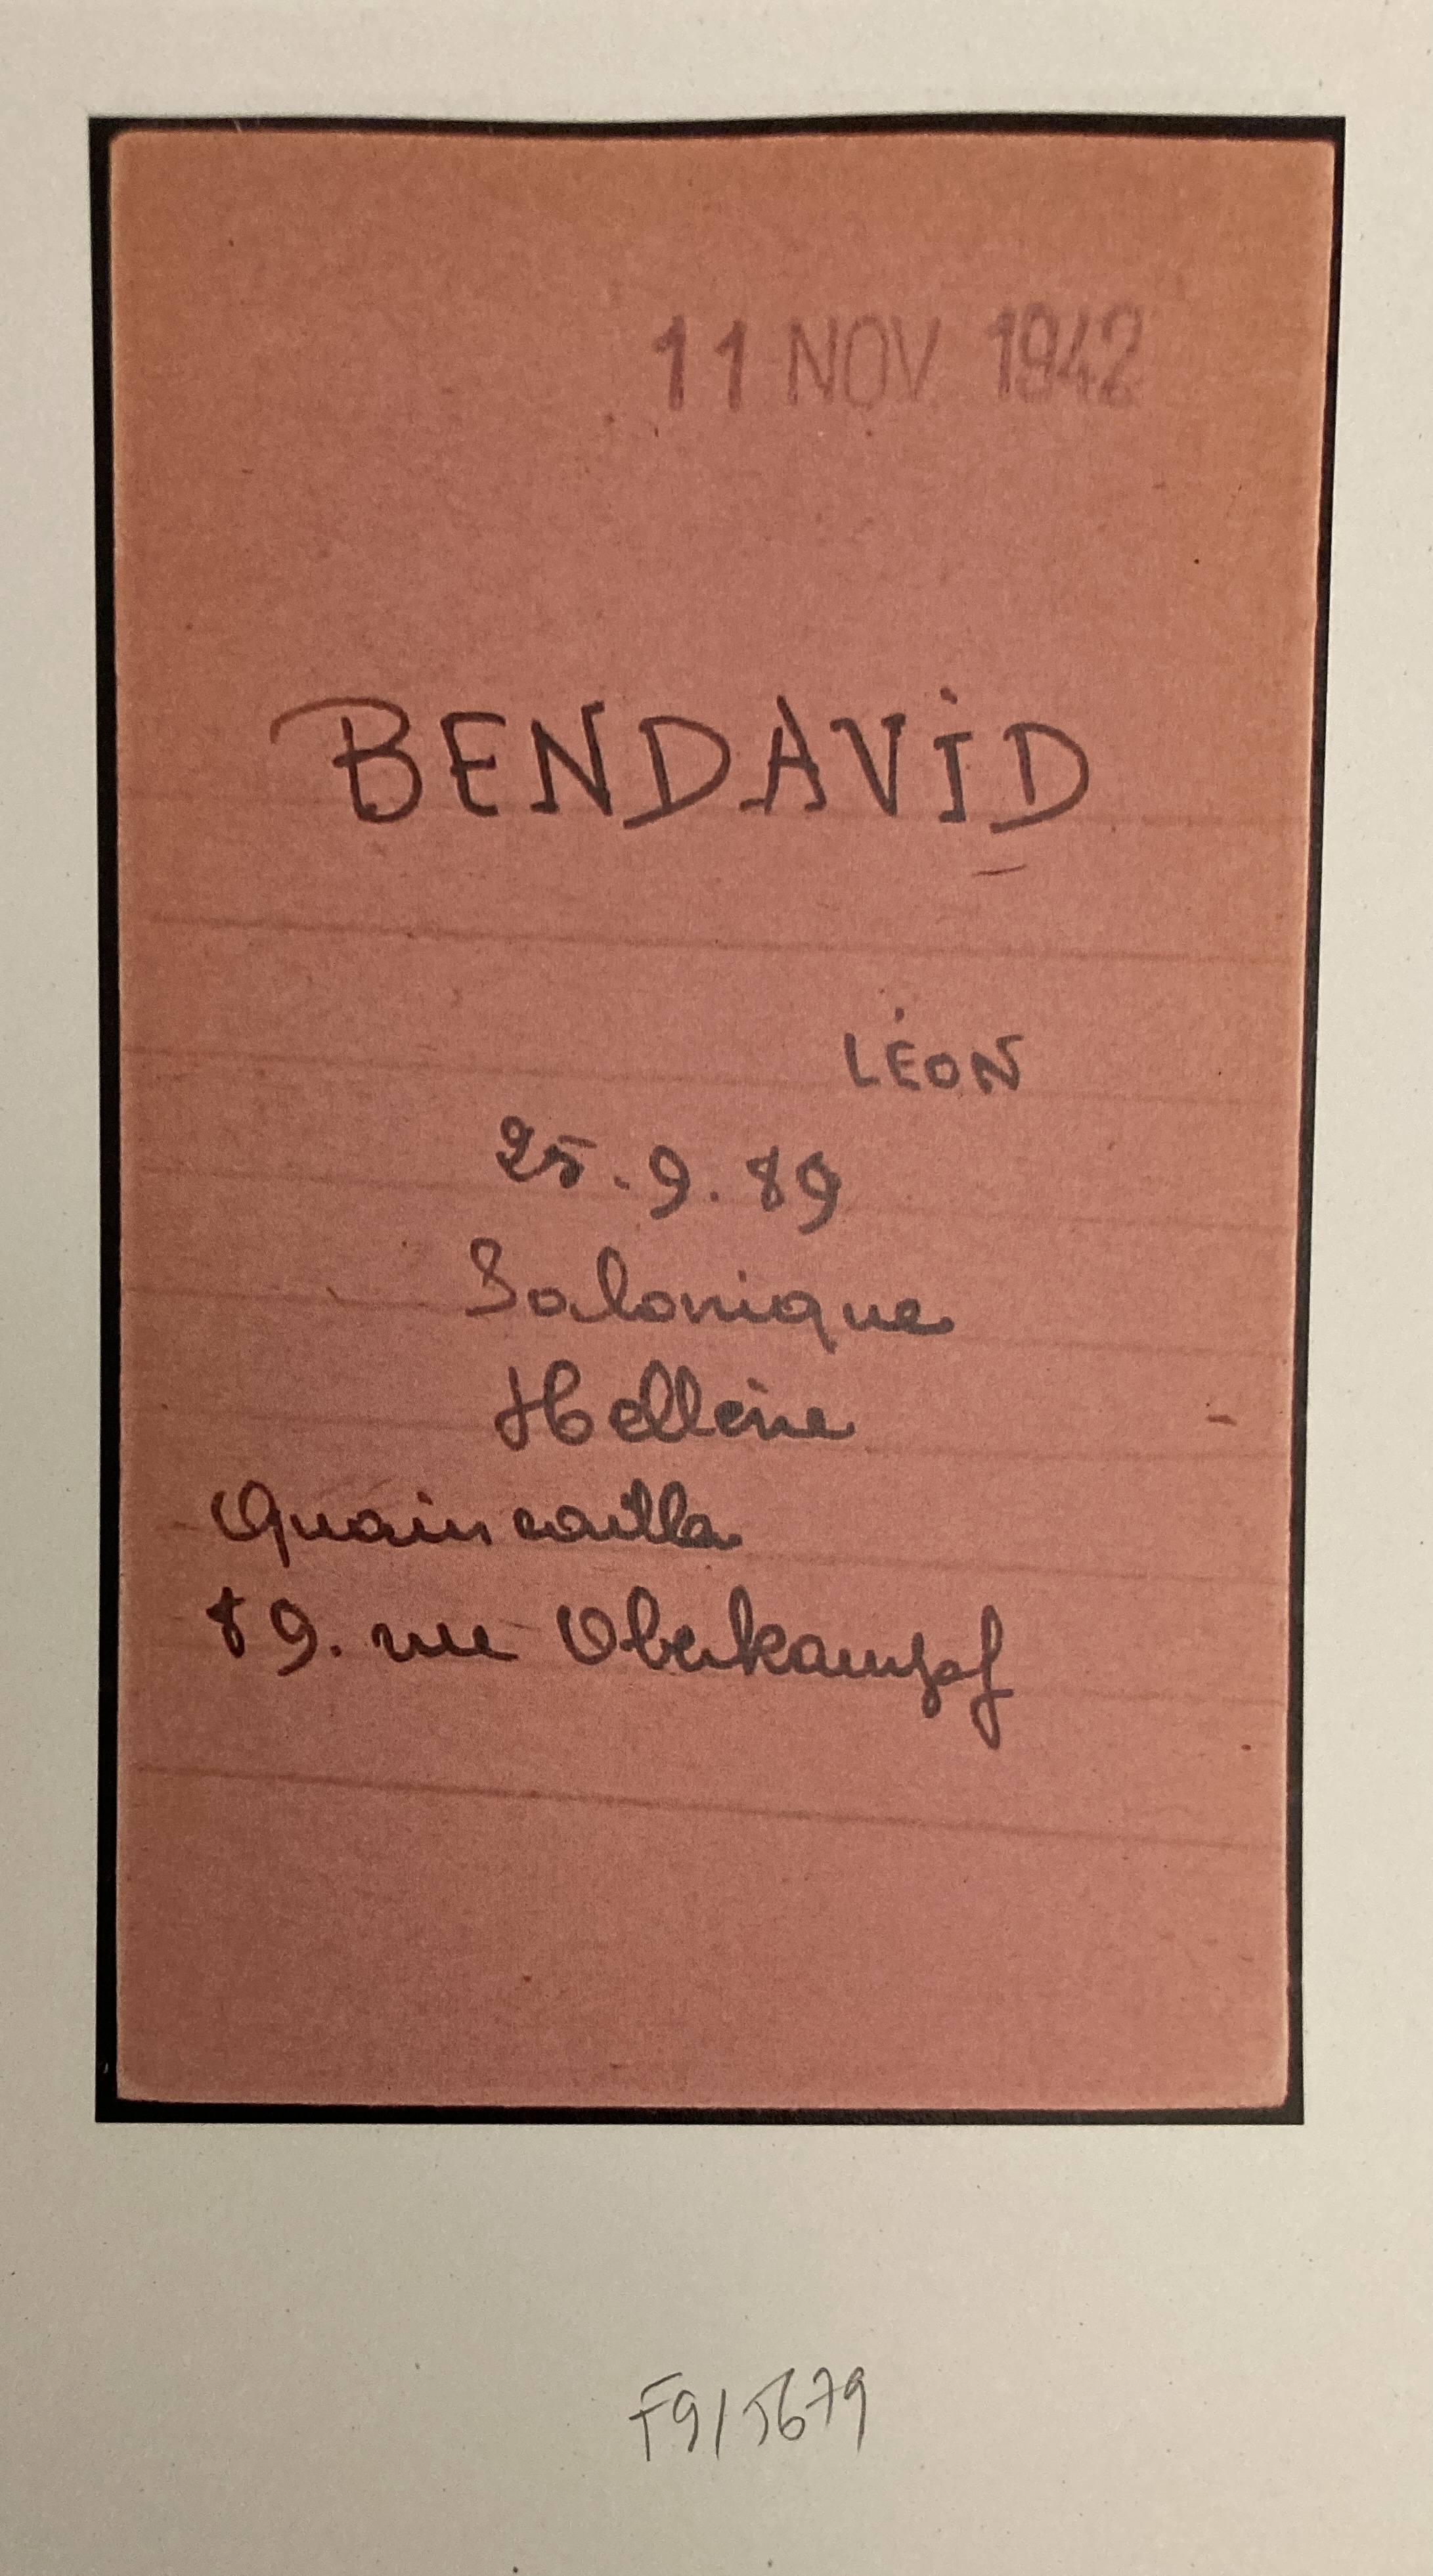 11 NOV. 1942
BENDAVID
LÉON
25.9.89
Salonique
Hellène
Quincaille
89. rue Oberkampf
F9/5679